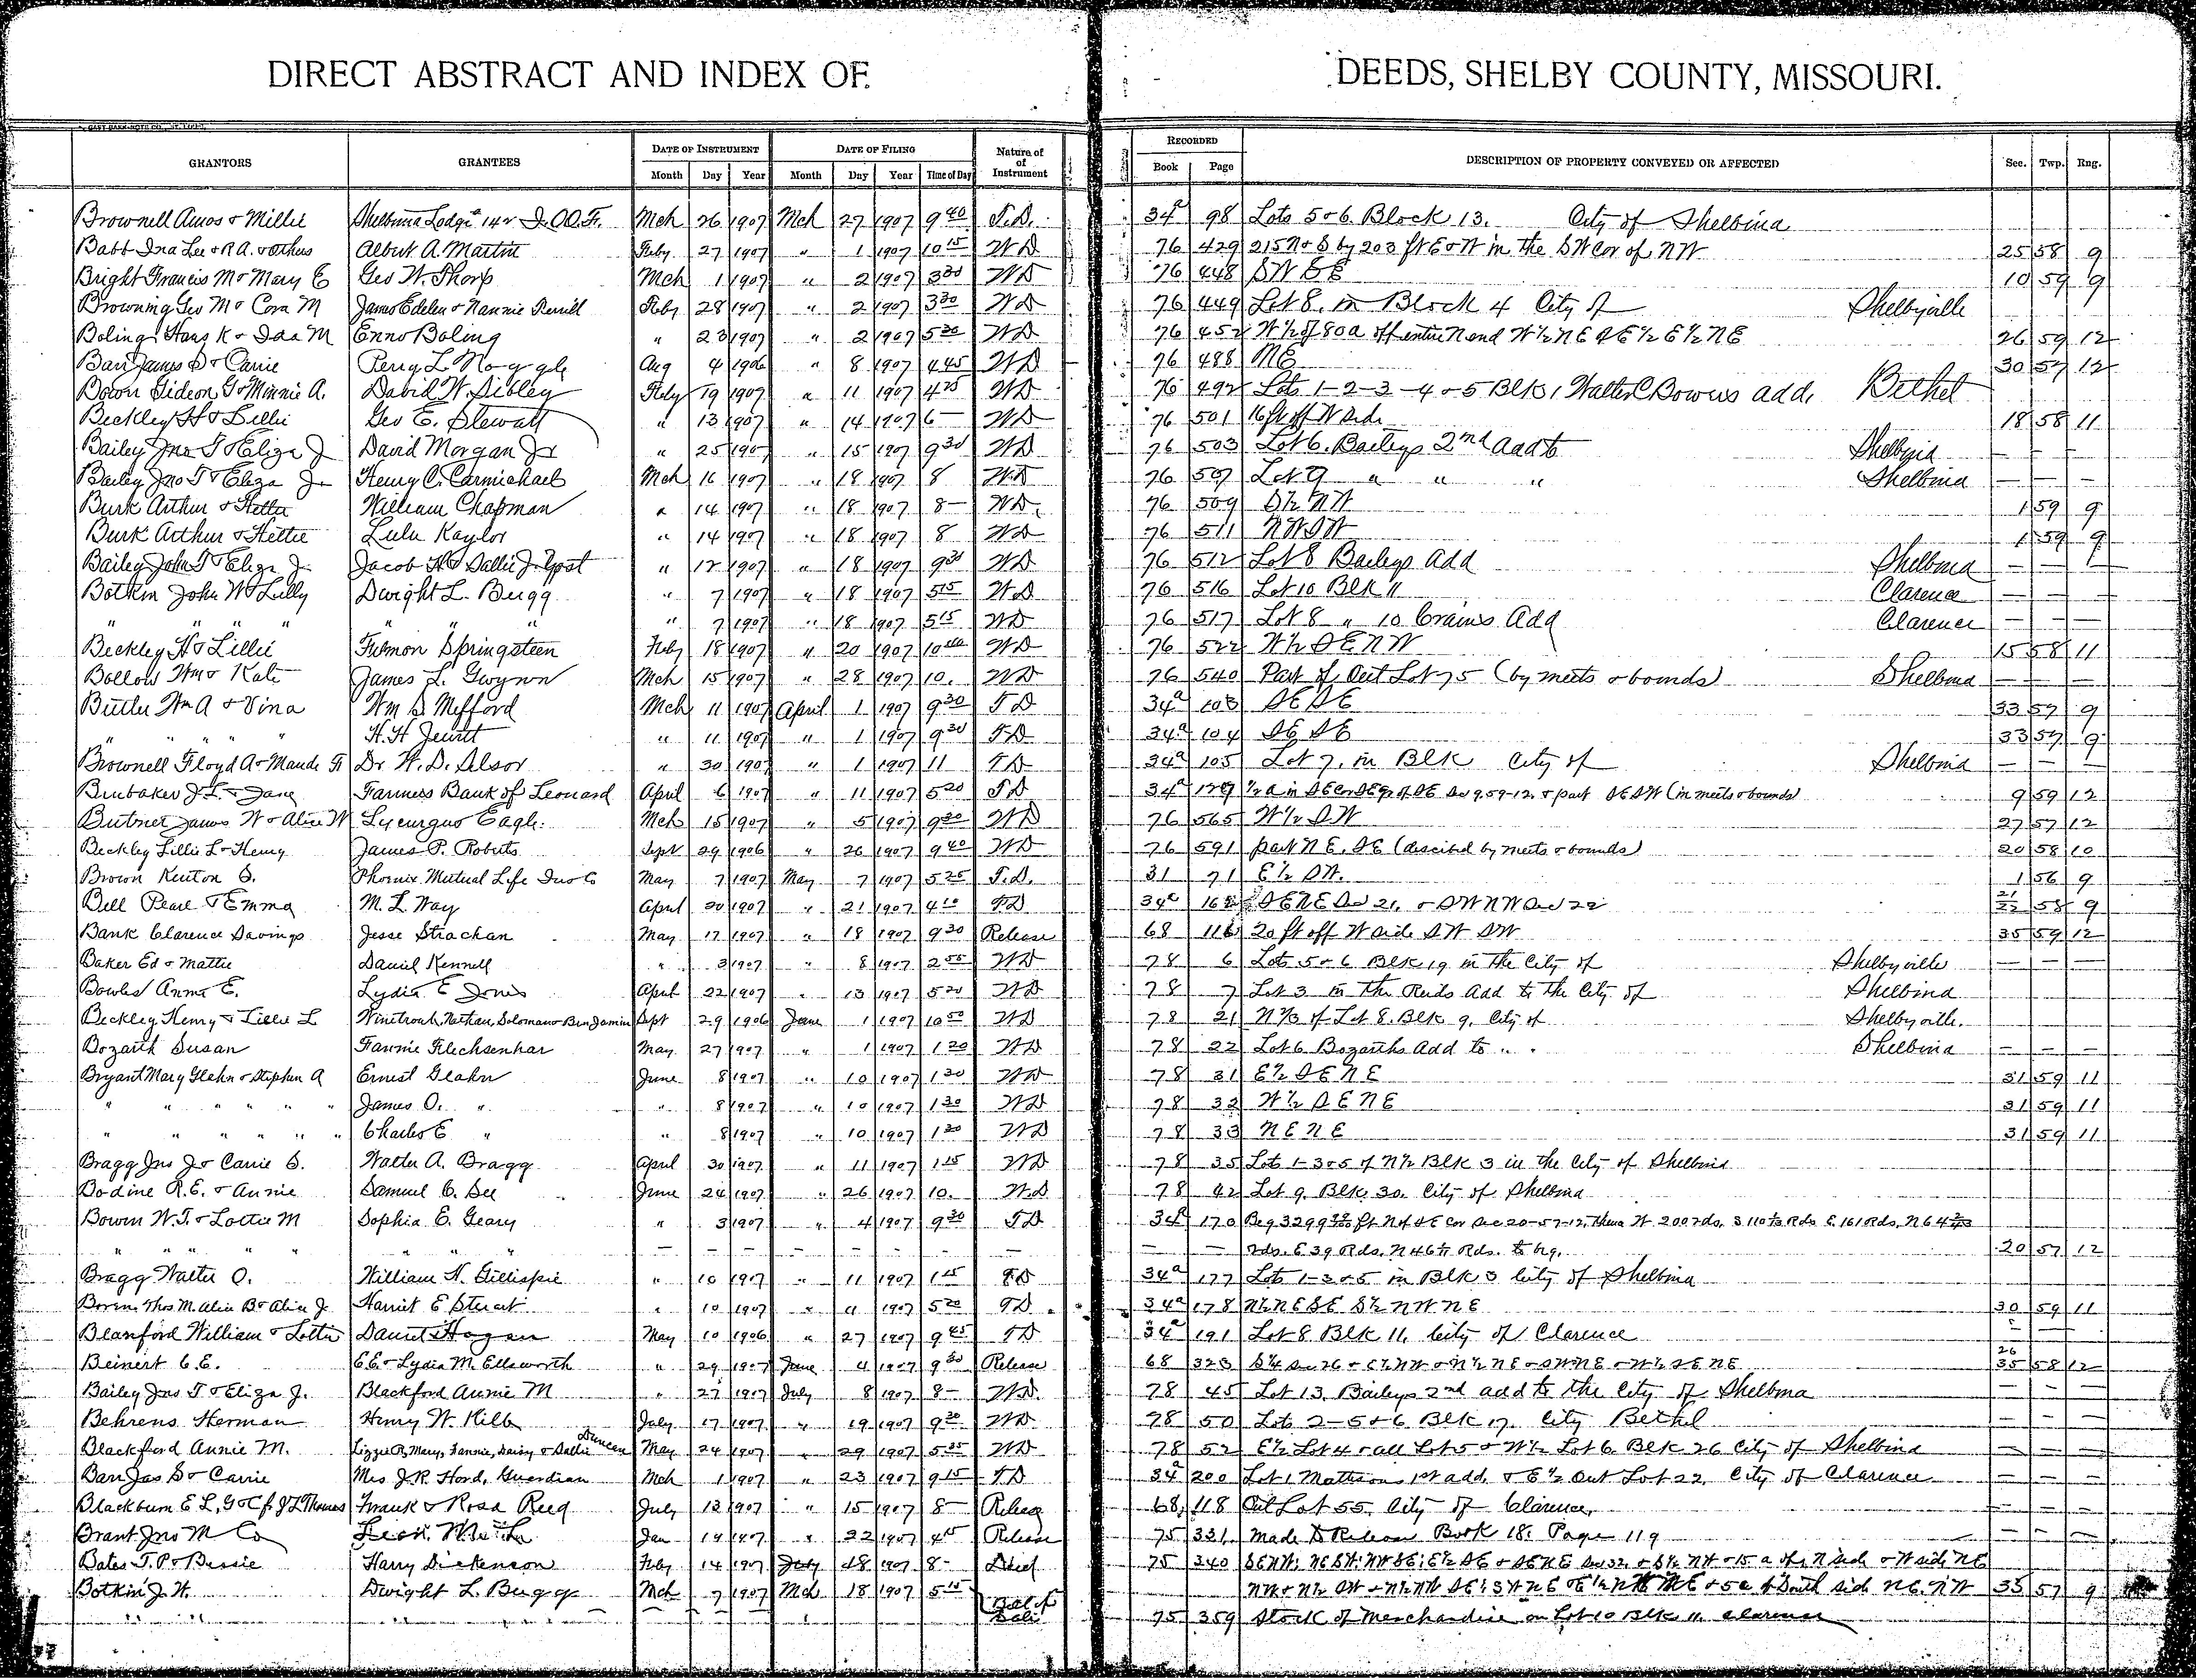 DIRECT ABSTRACT AND INDEX OF DEEDS, SHELBY COUNTY, MISSOURI.
GRANTORS GRANTEES DATE OF INSTRUMENT DATE OF FILING Nature of of Instrument RECORDED DESCRIPTION OF PROPERTY CONVEYED OR AFFECTED Sec. Twp. Rng.
Month Day Year Month Day Year Time of Day Book Page
Brownell Amos & Millie Shelbina Lodge 142 I.O.O.F. Mch 26 1907 Mch 27 1907 9 40 T.D. 34a 98 Lots 5 & 6 Block 13. City of Shelbina
Babb Ina Lee & R.A. & others Albert A. Martin Feby 27 1907 " 1 1907 10 15 WD 76 429 215 N & S by 203 ft E & W in the SW Cor of NW 25 58 9
Bright Francis M & Mary E Geo W. Thorp Mch 1 1907 " 2 1907 3 30 WD 76 448 SW SE 10 59 9
Browning Geo M & Cora M James Edelen & Nannie Terrill Feby 28 1907 " 2 1907 3 30 WD 76 449 Lot 8. in Block 4 City of Shelbyville
Boling Hans K & Ida M Enno Boling " 23 1907 " 2 1907 5 30 WD 76 452 W½ of 80 a off entire N end W½ NE & E½ E½ NE 26 59 12
Barr James S & Carrie Perry L. Noggle Aug 4 1906 " 8 1907 4 45 WD 76 488 NE 30 57 12
Bower Gideon G & Minnie A. David W. Sibley Feby 19 1907 " 11 1907 4 25 WD 76 492 Lots 1-2-3-4 & 5 Blk 1 Walter C Bowers add. Bethel
Beckley H & Lillie Geo E. Stewart " 13 1907 " 14 1907 6 — WD 76 501 16 ft off W side 18 58 11
Bailey Jno T & Eliza J David Morgan Jr " 25 1907 " 15 1907 9 30 WD 76 503 Lot 6. Baileys 2nd add to Shelbina — — —
Bailey Jno T & Eliza J Henry C. Carmichael Mch 16 1907 " 18 1907 8 WD 76 507 Lot 9 " " " Shelbina — — —
Burk Arthur & Hettie William Chapman " 14 1907 " 18 1907 8 — WD 76 509 S½ NW 1 59 9
Burk Arthur & Hettie Lulu Kaylor " 14 1907 " 18 1907 8 WD 76 511 NW SW 1 59 9
Bailey John T & Eliza J. Jacob H & Sallie J. Yost " 12 1907 " 18 1907 9 30 WD 76 512 Lot 8 Baileys Add Shelbina — — —
Botkin John W & Lilly Dwight L. Bugg " 7 1907 " 18 1907 5 15 WD 76 516 Lot 10 Blk 11 Clarence — — —
" " " " " " " 7 1907 " 18 1907 5 15 WD 76 517 Lot 8 " 10 Crains Add Clarence — — —
Beckley H & Lillie Furmon Springsteen Feby 18 1907 " 20 1907 10 WD 76 522 W½ SE NW 15 58 11
Bollow Wm & Kate James L. Gwynn Mch 15 1907 " 28 1907 10. WD 76 540 Part of Out Lot 75 (by meets & bounds) Shelbina — — —
Butler Wm A & Vina Wm S Mefford Mch 11 1907 April 1 1907 9 30 TD 34a 103 SE SE 33 57 9
" " " " H. H Jewett " 11 1907 " 1 1907 9 30 TD 34a 104 SE SE 33 57 9
Brownell Floyd A & Maude G Dr W. D. Alsor " 30 1907 " 1 1907 11 TD 34a 105 Lot 7. in Blk City of Shelbina — — —
Brubaker J. L. & Jane Farmers Bank of Leonard April 6 1907 " 11 1907 5 20 TD 34a 127 9 59 12
Butner James W & Alice W Lycurgus Eagle Mch 15 1907 " 5 1907 9 30 WD 76 565 W½ SW 27 57 12
Beckley Lillie L & Henry James P. Roberts Sept 29 1906 " 26 1907 9 40 WD 76 591 part NE. SE (described by meets & bounds) 20 58 10
Brown Kenton S. Phoenix Mutual Life Ins Co May 7 1907 May 7 1907 5 25 T.D. 31 71 E½ SW. 1 56 9
Bell Pearl & Emma M. L. Way April 20 1907 " 21 1907 4 10 TD 34a 162 SE NE Sec 21. & SW NW Sec 22 21 22 58 9
Bank Clarence Savings Jesse Strachan May 17 1907 " 18 1907 9 30 Release 68 116 20 ft off W side SW SW 35 59 12
Baker Ed & Mattie Daniel Kennell " 3 1907 " 8 1907 2 55 WD 78 6 Lots 5 & 6 Blk 19 in the City of Shelbyville — — —
Bowles Anna E. Lydia E Jones April 22 1907 " 13 1907 5 20 WD 78 7 Lot 3 in the Reids Add to the City of Shelbina
Beckley Henry & Lillie L Winetroub, Nathan, Solomon & Benjamin Sept 29 1906 June 1 1907 10 50 WD 78 21 N⅓ of Lot 8. Blk 9. City of Shelbyville.
Bozarth Susan Fannie Flechsenhar May 27 1907 " 1 1907 1 20 WD 78 22 Lot 6 Bozarths Add to " " Shelbina — — —
Bryant Mary Glahn & Stephen A Ernest Glahn June 8 1907 " 10 1907 1 30 WD 78 31 E½ SE NE 31 59 11
" " " " " " James O. " " 8 1907 " 10 1907 1 30 WD 78 32 W½ SE NE 31 59 11
" " " " " " Charles E " " 8 1907 " 10 1907 1 30 WD 78 33 NE NE 31 59 11
Bragg Jno J & Carrie S. Walter A. Bragg April 30 1907 " 11 1907 1 15 WD 78 35 Lots 1-3 & 5 of N½ Blk 3 in the City of Shelbina
Bodine R. E. & Annie Samuel C. See June 24 1907 " 26 1907 10. WD 78 42 Lot 9. Blk 30. City of Shelbina
Bowen W. T. & Lottie M Sophia E. Geary " 3 1907 " 4 1907 9 30 TD 34a 170
" " " " " " " " — — — — — — — — — — rds. E 39 Rds. N 46 Rds. to beg. 20 57 12
Bragg Walter O. William N. Gillispie " 10 1907 " 11 1907 1 15 TD 34a 177 Lots 1-3 & 5 in Blk 3 City of Shelbina
Boren Thos M. Alice B & Alice J Harriet E Stuart " 10 1907 " 11 1907 5 20 TD 34a 178 N½ NE SE S½ NW NE 30 59 11
Blanford William & Lottie Daniel Hogan May 10 1906 " 27 1907 9 45 TD 34a 191 Lot 8 Blk 11. City of Clarence —
Beinert C. E. C. E. & Lydia M. Ellsworth " 29 1907 June 4 1907 9 30 Release 68 323 26 35 58 12
Bailey Jno T & Eliza J. Blackford Annie M " 27 1907 July 8 1907 8 — WD. 78 45 Lot 13. Baileys 2nd add to the City of Shelbina — — —
Behrens Herman Henry W. Kilb July 17 1907 " 19 1907 9 20 WD 78 50 Lots 2-5 & 6 Blk 17. City Bethel — — —
Blackford Annie M. Lizzie R, Mary, Fannie, Daisy & Sallie Duncan May 24 1907 " 29 1907 5 35 WD 78 52 E½ Lot 4 & all Lot 5 & W½ Lot 6. Blk 26 City of Shelbina — — —
Barr Jas S & Carrie Mrs J. R. Hord, Guardian Mch 1 1907 " 23 1907 9 15 TD 34a 200 Lot 1 Mathisons 1st add. & E½ Out Lot 22. City of Clarence — — —
Blackburn E L, Frank & Rosa Reeg July 13 1907 " 15 1907 8 — Release 68 118 Out Lot 55. City of Clarence. — — —
Brant Jno M Co Jan 14 1907 " 22 1907 4 15 Release 75 331 Made D Release Book 18. Page 119 — — —
Bates T. P & Bessie Harry Dickenson Feby 14 1907 July 18 1907 8 - Deed 75 340
Botkin J. W. Dwight L. Bugg Mch 7 1907 Mch 18 1907 5 15 33 57 9
" " " " " " Bill of Sale 75 359 Stock of Merchandise on Lot 10 Blk 11. Clarence